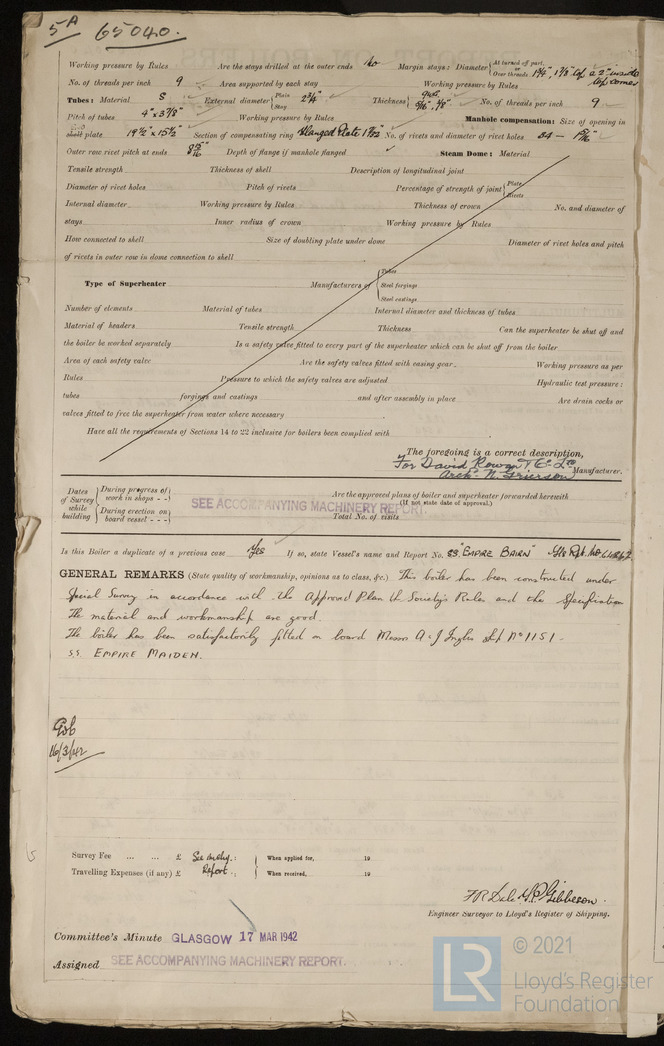 5A 65040.
Working pressure by Rules Are the stays drilled at the outer ends No Margin stays: Diameter { At turned off part, or Over threads 1¾", 1⅞" top a 2" inside top corner
No. of threads per inch 9 Area supported by each stay Working pressure by Rules
Tubes: Material S External diameter { Plain Stay 2¾" Thickness { 5/16", ⅜" No. of threads per inch 9
Pitch of tubes 4" x 3⅞" Working pressure by Rules Manhole compensation: Size of opening in
shell plate 19½" x 15½" Section of compensating ring Flanged Plate 1 7/32" No. of rivets and diameter of rivet holes 34 — 1 5/16"
Outer row rivet pitch at ends 8 5/16" Depth of flange if manhole flanged Steam Dome: Material
Tensile strength Thickness of shell Description of longitudinal joint
Diameter of rivet holes Pitch of rivets Percentage of strength of joint { Plate Rivets
Internal diameter Working pressure by Rules Thickness of crown No. and diameter of
stays Inner radius of crown Working pressure by Rules
How connected to shell Size of doubling plate under dome Diameter of rivet holes and pitch
of rivets in outer row in dome connection to shell
Type of Superheater Manufacturers of { Tubes Steel forgings Steel castings
Number of elements Material of tubes Internal diameter and thickness of tubes
Material of headers Tensile strength Thickness Can the superheater be shut off and
the boiler be worked separately Is a safety valve fitted to every part of the superheater which can be shut off from the boiler
Area of each safety valve Are the safety valves fitted with easing gear Working pressure as per
Rules Pressure to which the safety valves are adjusted Hydraulic test pressure:
tubes forgings and castings and after assembly in place Are drain cocks or
valves fitted to free the superheater from water where necessary
Have all the requirements of Sections 14 to 22 inclusive for boilers been complied with
The foregoing is a correct description,
For David Rowan & Co Ltd Manufacturer.
Archd. N. Grierson
Dates of Survey while building { During progress of work in shops - - During erection on board vessel - - -
SEE ACCOMPANYING MACHINERY REPORT.
Are the approved plans of boiler and superheater forwarded herewith
(If not state date of approval.)
Total No. of visits
Is this Boiler a duplicate of a previous case Yes If so, state Vessel's name and Report No. SS "EMPIRE BAIRN" Gls Rpt. No
GENERAL REMARKS (State quality of workmanship, opinions as to class, &c.) This boiler has been constructed under
Special Survey in accordance with the Approved Plan the Society's Rules and the Specification
The material and workmanship are good.
The boiler has been satisfactorily fitted on board Messrs A & J Inglis Ship No 1151 -
SS. EMPIRE MAIDEN.
16/3/42
Survey Fee ... ... £ See mchy. : When applied for, 19
Travelling Expenses (if any) £ Report. : When received, 19
F R Dale G.P. Gibbeson.
Engineer Surveyor to Lloyd's Register of Shipping.
Committee's Minute GLASGOW 17 MAR 1942
Assigned SEE ACCOMPANYING MACHINERY REPORT.
LR © 2021
Lloyd's Register
Foundation